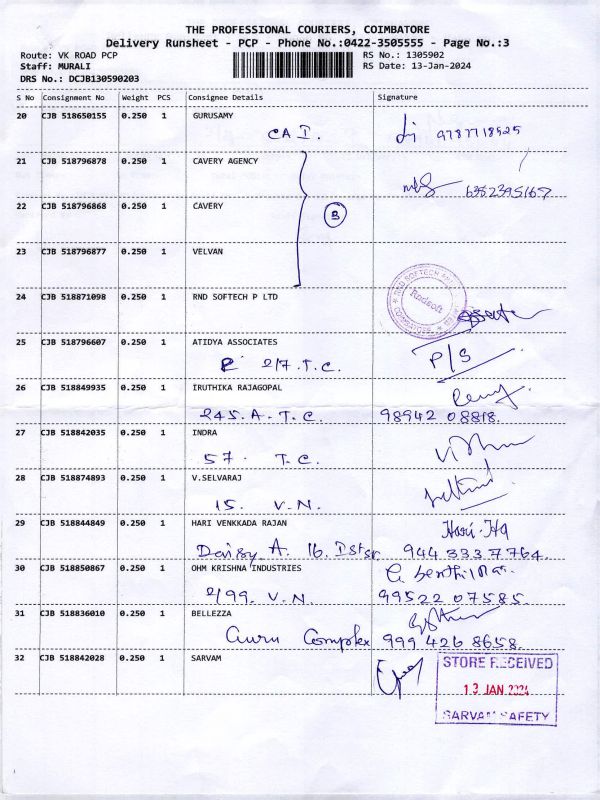 THE PROFESSIONAL COURIERS, COIMBATORE
Delivery Runsheet - PCP - Phone No.:0422-3505555 - Page No.:3
Route: VK ROAD PCP RS No.: 1305902
Staff: MURALI RS Date: 13-Jan-2024
DRS No.: DCJB130590203
S No Consignment No Weight PCS Consignee Details Signature
20 CJB 518650155 0.250 1 GURUSAMY
CA I. 9787718925
21 CJB 518796878 0.250 1 CAVERY AGENCY
6382395167
22 CJB 518796868 0.250 1 CAVERY
3
23 CJB 518796877 0.250 1 VELVAN
24 CJB 518871098 0.250 1 RND SOFTECH P LTD
RND SOFTECH
Rndsoft
COIMBATORE
25 CJB 518796607 0.250 1 ATIDYA ASSOCIATES
2/7 T.C. P/S
26 CJB 518849935 0.250 1 IRUTHIKA RAJAGOPAL
245. A. T. C. 98942 08818.
27 CJB 518842035 0.250 1 INDRA
57. T. C.
28 CJB 518874893 0.250 1 V.SELVARAJ
15. V. N.
29 CJB 518844849 0.250 1 HARI VENKKADA RAJAN
Hari
Daisy A. 16. Ist st 944 333 7764.
30 CJB 518850867 0.250 1 OHM KRISHNA INDUSTRIES
2/99. V. N. 99522 07585.
31 CJB 518836010 0.250 1 BELLEZZA
Guru Complex 999 426 8658.
32 CJB 518842028 0.250 1 SARVAM
STORE RECEIVED
13 JAN 2024
SARVAM SAFETY